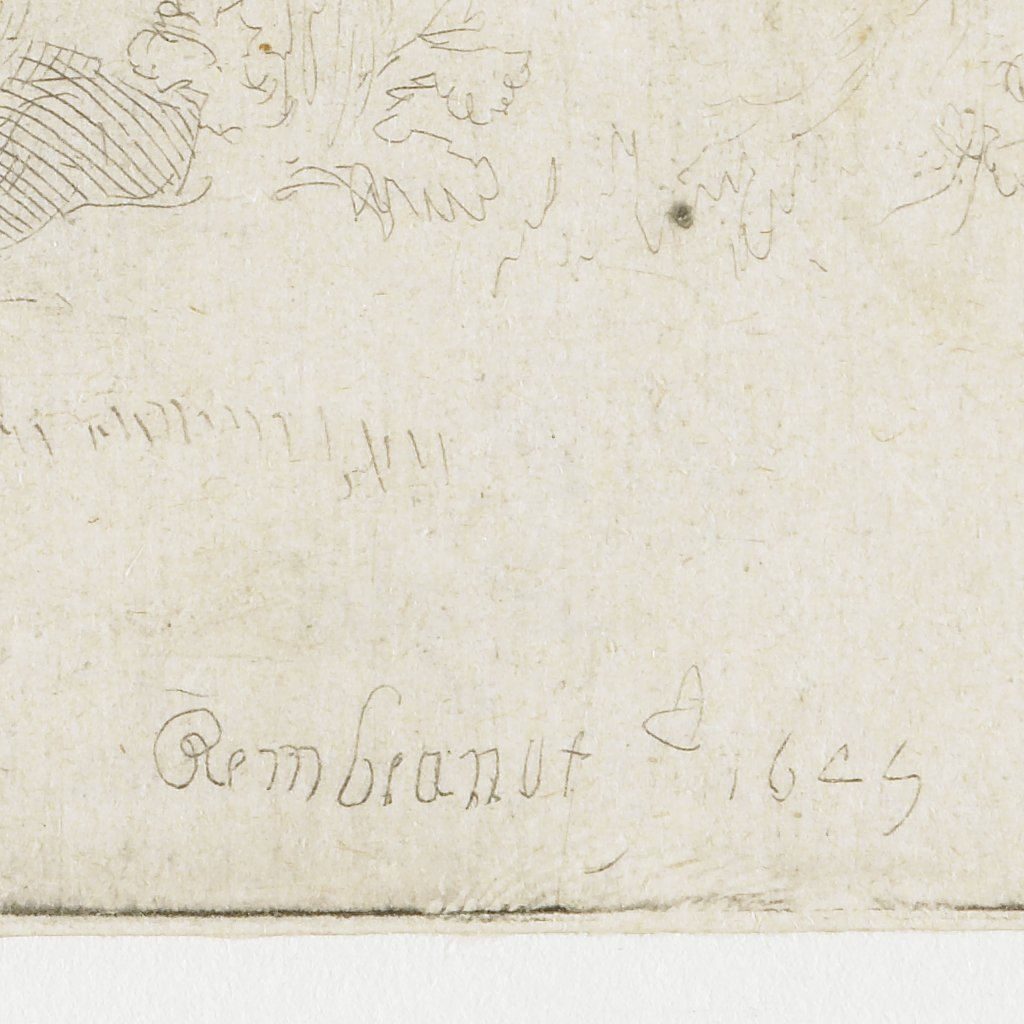 Rembranut f 1645